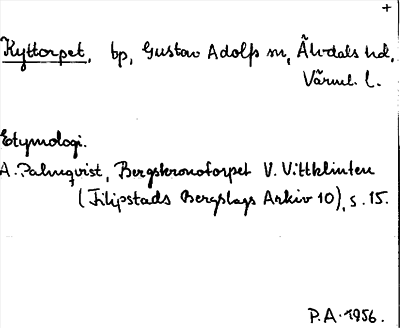 +
Kyttorpet, bp, Gustav Adolfs sn, Älvdals hd,
Värml. l.
Etymologi.
A. Palmqvist, Bergskronotorpet V. Vittklinten
(Filipstads Bergslags Arkiv 10), s. 15.
P.A. 1956.